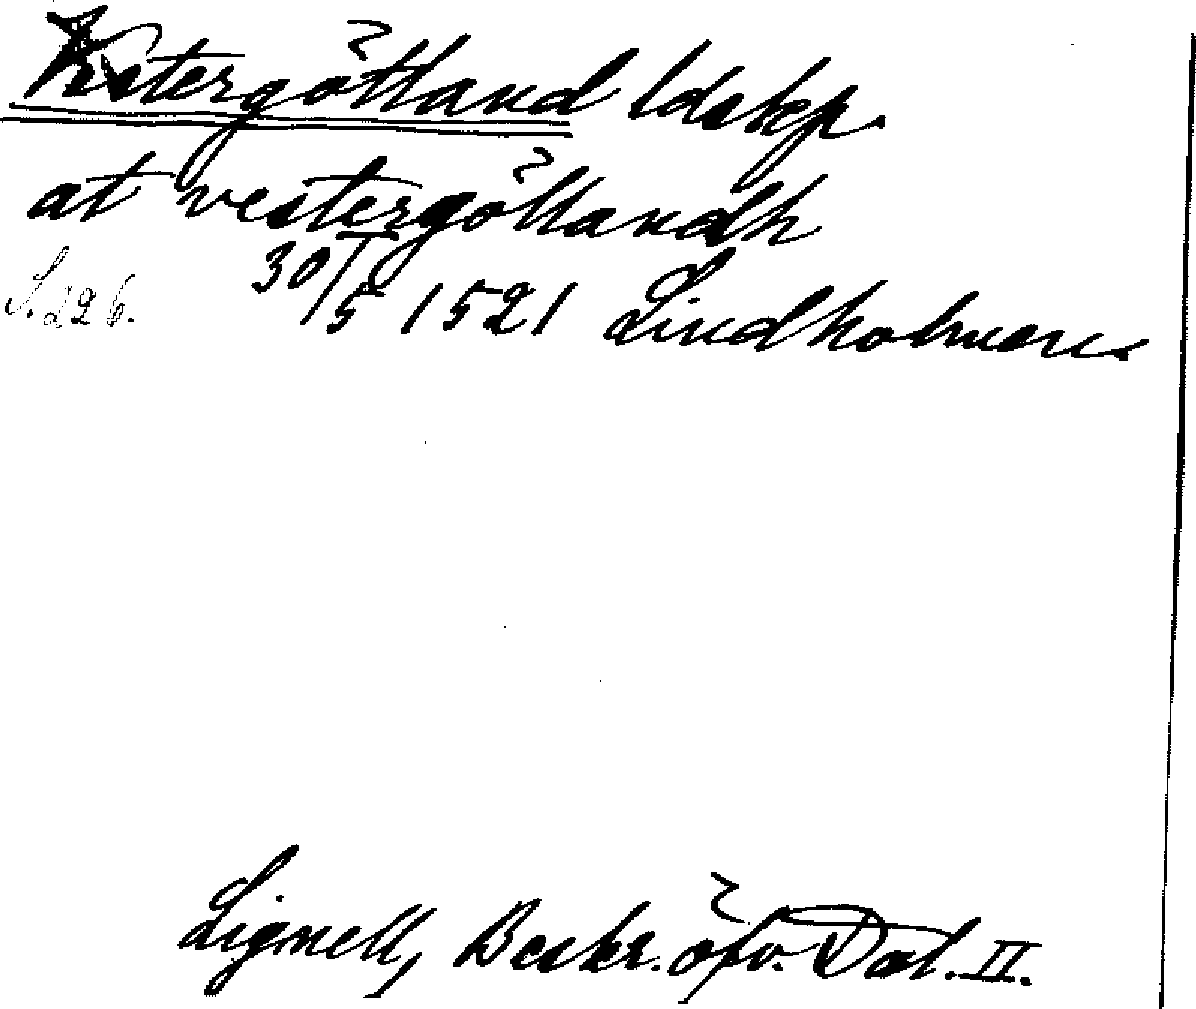 Vestergötland ldskp.
at vestergötlandh
S. 226. 30/5 1521 Lindholmen
Lignell, Beskr. öfv. Dal. II.